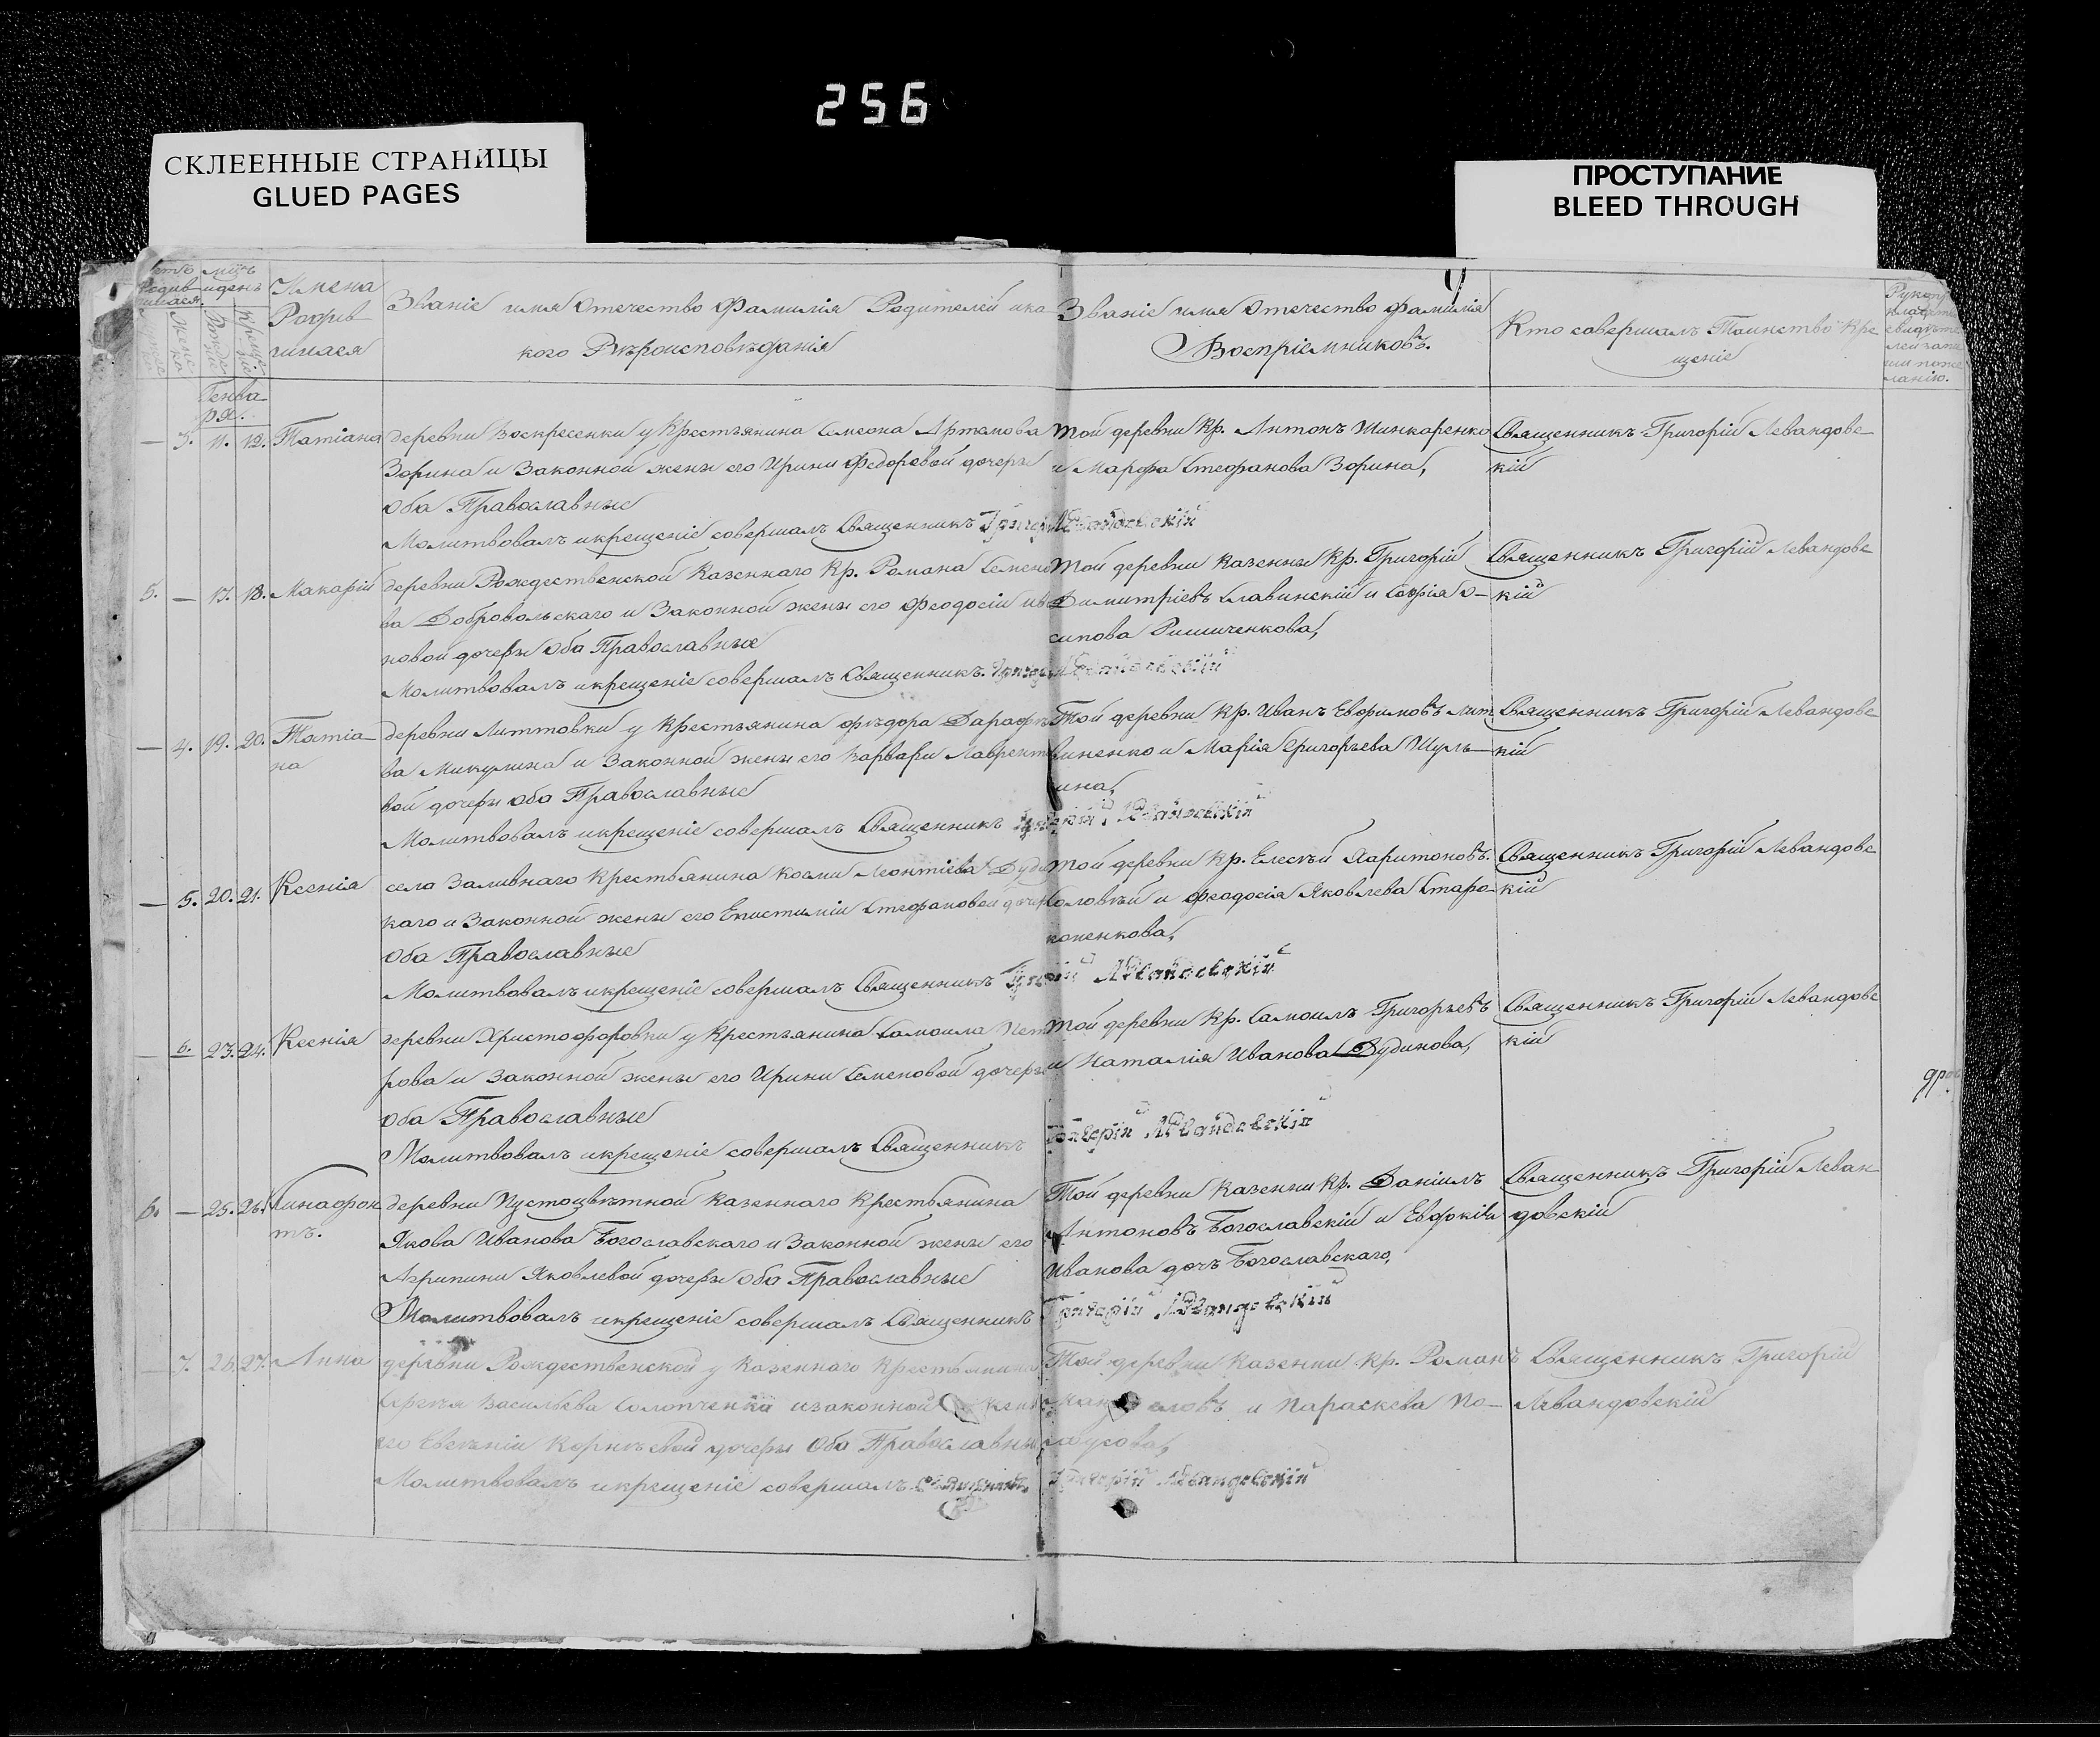 256
СКЛЕЕННЫЕ СТРАНИЦЫ
GLUED PAGES
ПРОСТУПАНИЕ
BLEED THROUGH
9
Имена
Родив
шихся
Званіе имя Отечество Фамилія Родителей и ка
кого Вѣроисповѣданія
Званіе имя Отечество фамилія
Воспріемниковъ.
Кто совершалъ Таинство Кре
щеніе
Генва
ря.
— 3. 11. 12. Татіана
деревни Воскресенки у Крестьянина Симеона Артемова
Зорина и Законной жены его Ирины Федоровой дочери
Оба Православные
Молитвовалъ и крещеніе совершалъ Священникъ
Той деревни Кр. Антонъ Шинкаренко
и Марфа Стефанова Зорина,
Священникъ Григорій Левандовс
кій
5. — 17. 18. Макарій
деревни Рождественской Казеннаго Кр. Романа Семено
ва Добровольскаго и Законной жены его Феодосіи Ива
новой дочери Оба Православные
Молитвовалъ и крещеніе совершалъ Священникъ.
Той деревни Казенны Кр. Григорій
Димитріевъ Славинскій и Софія О-
сипова
Священникъ Григорій Левандовс
кій
— 4. 19. 20. Татіа
на
деревни Литтовки у Крестьянина Фѣдора
ва Микулина и Законной жены его Варвары Лаврентіе
вой дочери Оба Православные
Молитвовалъ и крещеніе совершалъ Священникъ
Той деревни Кр. Иванъ Евфимовъ Лит
виненко и Марія Григорьева Шуль-
гина,
Священникъ Григорій Левандовс
кій
— 5. 20. 21. Ксенія
села Заливнаго Крестьянина Космы Леонтіева
каго и Законной жены его Епистиміи Стефановой дочери
Оба Православные
Молитвовалъ и крещеніе совершалъ Священникъ
Той деревни Кр. Елесѣй Харитоновъ
Соловѣй и Феодосія Яковлева Старо-
коненкова,
Священникъ Григорій Левандовс
кій
— 6. 23. 24. Ксенія
деревни Христофоровки у Крестьянина Самоила Пет
рова и Законной жены его Ирины Семеновой дочери
Оба Православные
Молитвовалъ и крещеніе совершалъ Священникъ
Григорій Левандовскій
Той деревни Кр. Самоилъ Григорьевъ
и Наталія Иванова Дудинова,
Священникъ Григорій Левандовс
кій
6. — 25. 26. Ксинофон
тъ.
деревни Пустоцвѣтной Казеннаго Крестьянина
Якова Иванова Богославскаго и Законной жены его
Агрипины Яковлевой дочери Оба Православные
Молитвовалъ и крещеніе совершалъ Священникъ
Григорій Левандовскій
Той деревни Казенны Кр. Даніилъ
Антоновъ Богославскій и Евфкія
Иванова дочь Богославскаго,
Священникъ Григорій Леван
довскій
— 7. 26. 27. Анна
деревни Рождественской у Казеннаго Крестьянина
Сергѣя Васильева и законной жены
его Евгеніи Корнѣевой дочери Оба Православные
Молитвовалъ и крещеніе совершалъ Священникъ
Григорій Левандовскій
Той деревни Казенны Кр. Романъ
и Параскева По-
Священникъ Григорій
Левандовскій